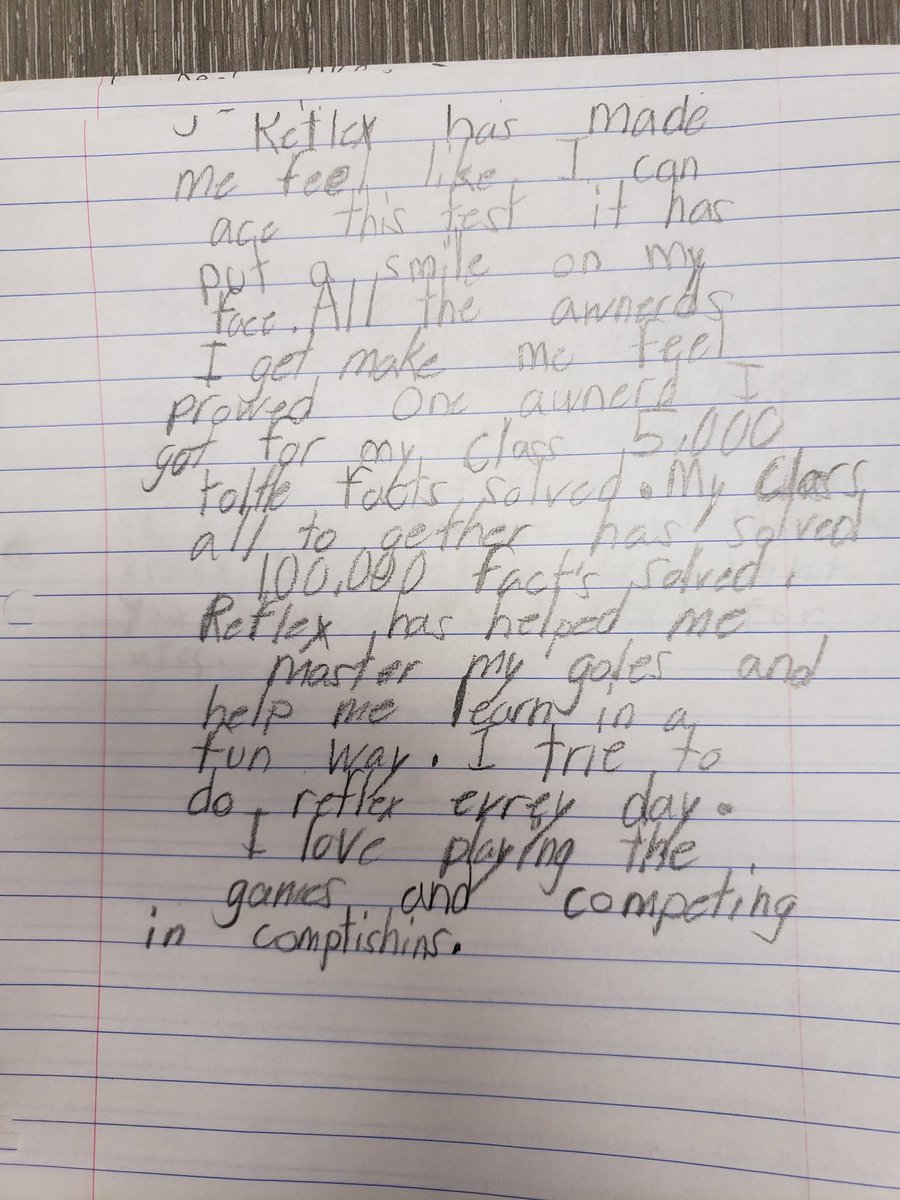 Reflex has made
me feel like I can
ace this test it has
put a smile on my
face. All the awnerds
I get make me feel
prowed One awnerd I
got for my Class 5,000
tolte facts solved. My Class
all to gether has solved
100,000 fact's solved.
Reflex has helped me
master my goles and
help me learn in a
fun way. I trie to
do reflex evrey day.
I love playing the
games and competing
in comptishins.